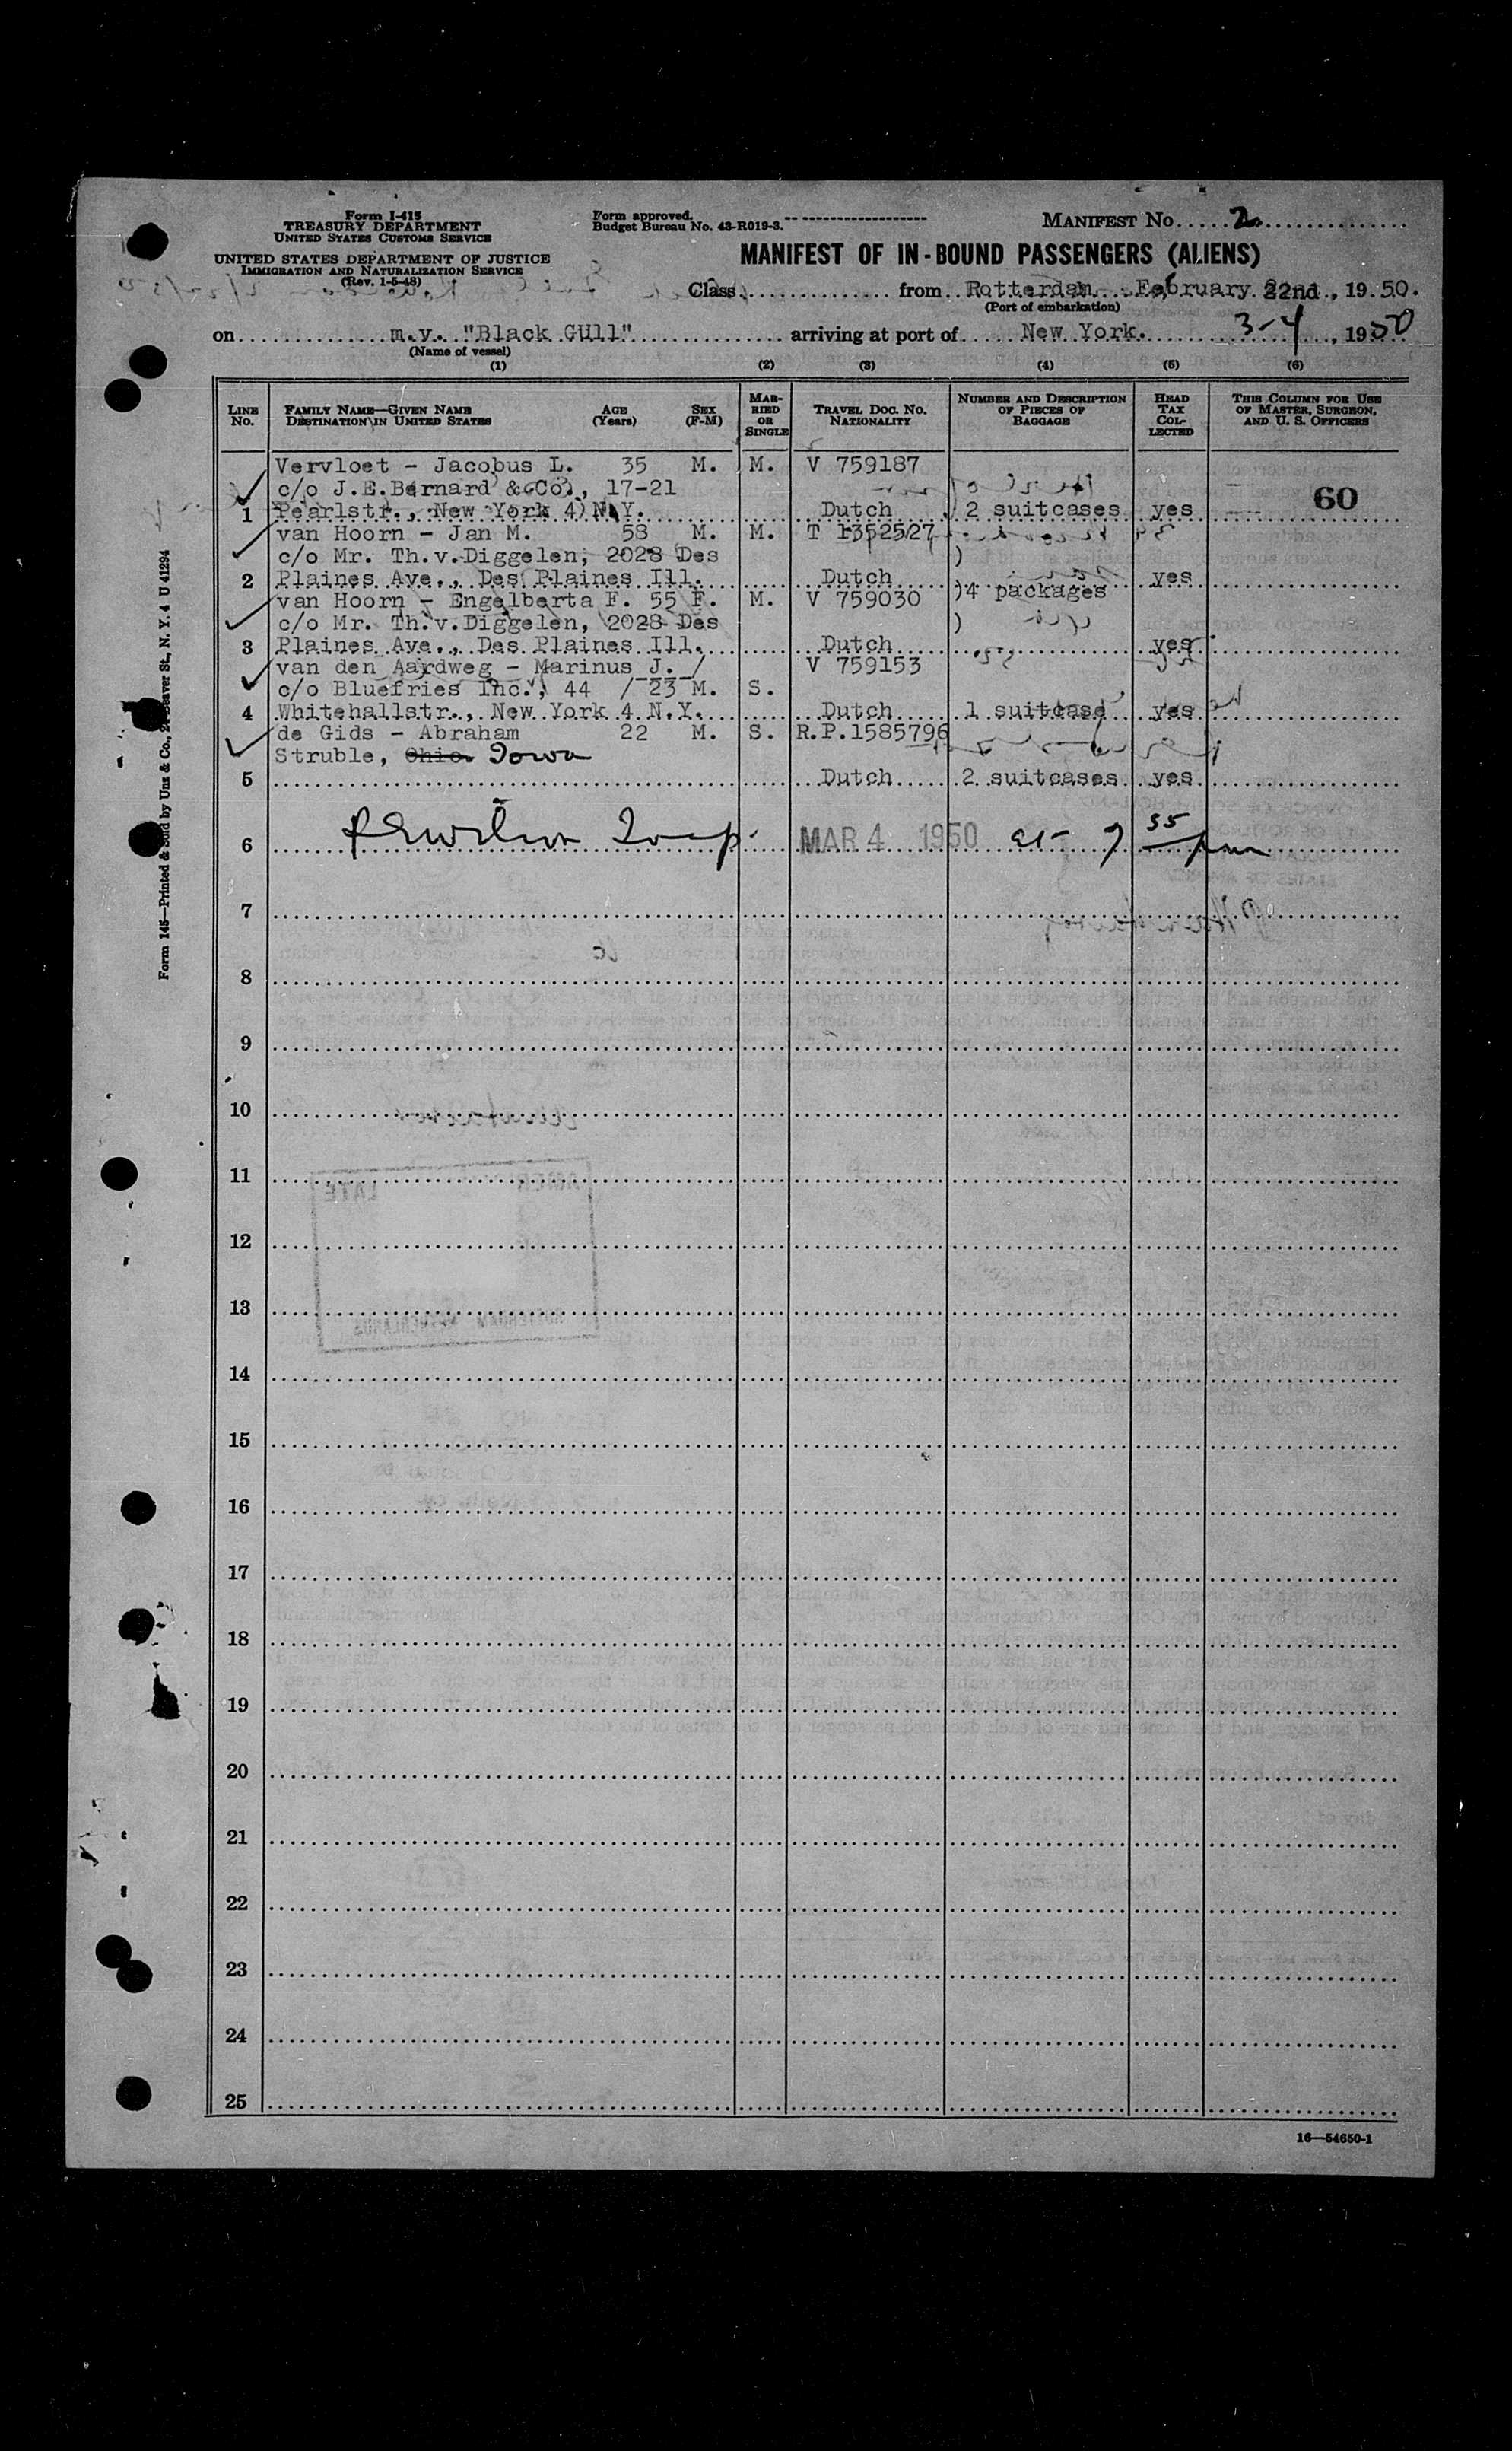 Form I-415
TREASURY DEPARTMENT
UNITED STATES CUSTOMS SERVICE
UNITED STATES DEPARTMENT OF JUSTICE
IMMIGRATION AND NATURALIZATION SERVICE
(Rev. 1-5-48)
Form approved.
Budget Bureau No. 43-R019-3.
MANIFEST NO. 2
MANIFEST OF IN-BOUND PASSENGERS (ALIENS)
Class from Rotterdam February 22nd, 19 50.
(Port of embarkation)
on m.v. "Black GUll" arriving at port of New York. 3-4, 1950
(Name of vessel)
(1) (2) (3) (4) (5) (6)
LINE No. FAMILY NAME—GIVEN NAME DESTINATION IN UNITED STATES AGE (Years) SEX (F-M) MARRIED OR SINGLE TRAVEL DOC. NO. NATIONALITY NUMBER AND DESCRIPTION OF PIECES OF BAGGAGE HEAD TAX COLLECTED THIS COLUMN FOR USE OF MASTER, SURGEON, AND U. S. OFFICERS
Vervloet - Jacobus L. 35 M. M. V 759187
c/o J.E.Bernard & Co., 17-21 60
1 Pearlstr., New York 4 N.Y. Dutch 2 suitcases yes
van Hoorn - Jan M. 58 M. M. T 1352527
c/o Mr. Th.v.Diggelen, 2028 Des )
2 Plaines Ave., Des Plaines Ill. Dutch yes
van Hoorn - Engelberta F. 55 F. M. V 759030 )4 packages
c/o Mr. Th.v.Diggelen, 2028 Des )
3 Plaines Ave., Des Plaines Ill. Dutch yes
van den Aardweg - Marinus J. / V 759153
c/o Bluefries Inc., 44 / 23 M. S.
4 Whitehallstr., New York 4 N.Y. Dutch 1 suitcase yes
de Gids - Abraham 22 M. S. R.P.1585796
Struble, Ohio. Iowa
5 Dutch 2 suitcases yes
6 MAR 4 1950 at 7 55 pm
7
8
9
10
11
12
13
14
15
16
17
18
19
20
21
22
23
24
25
16—54650-1